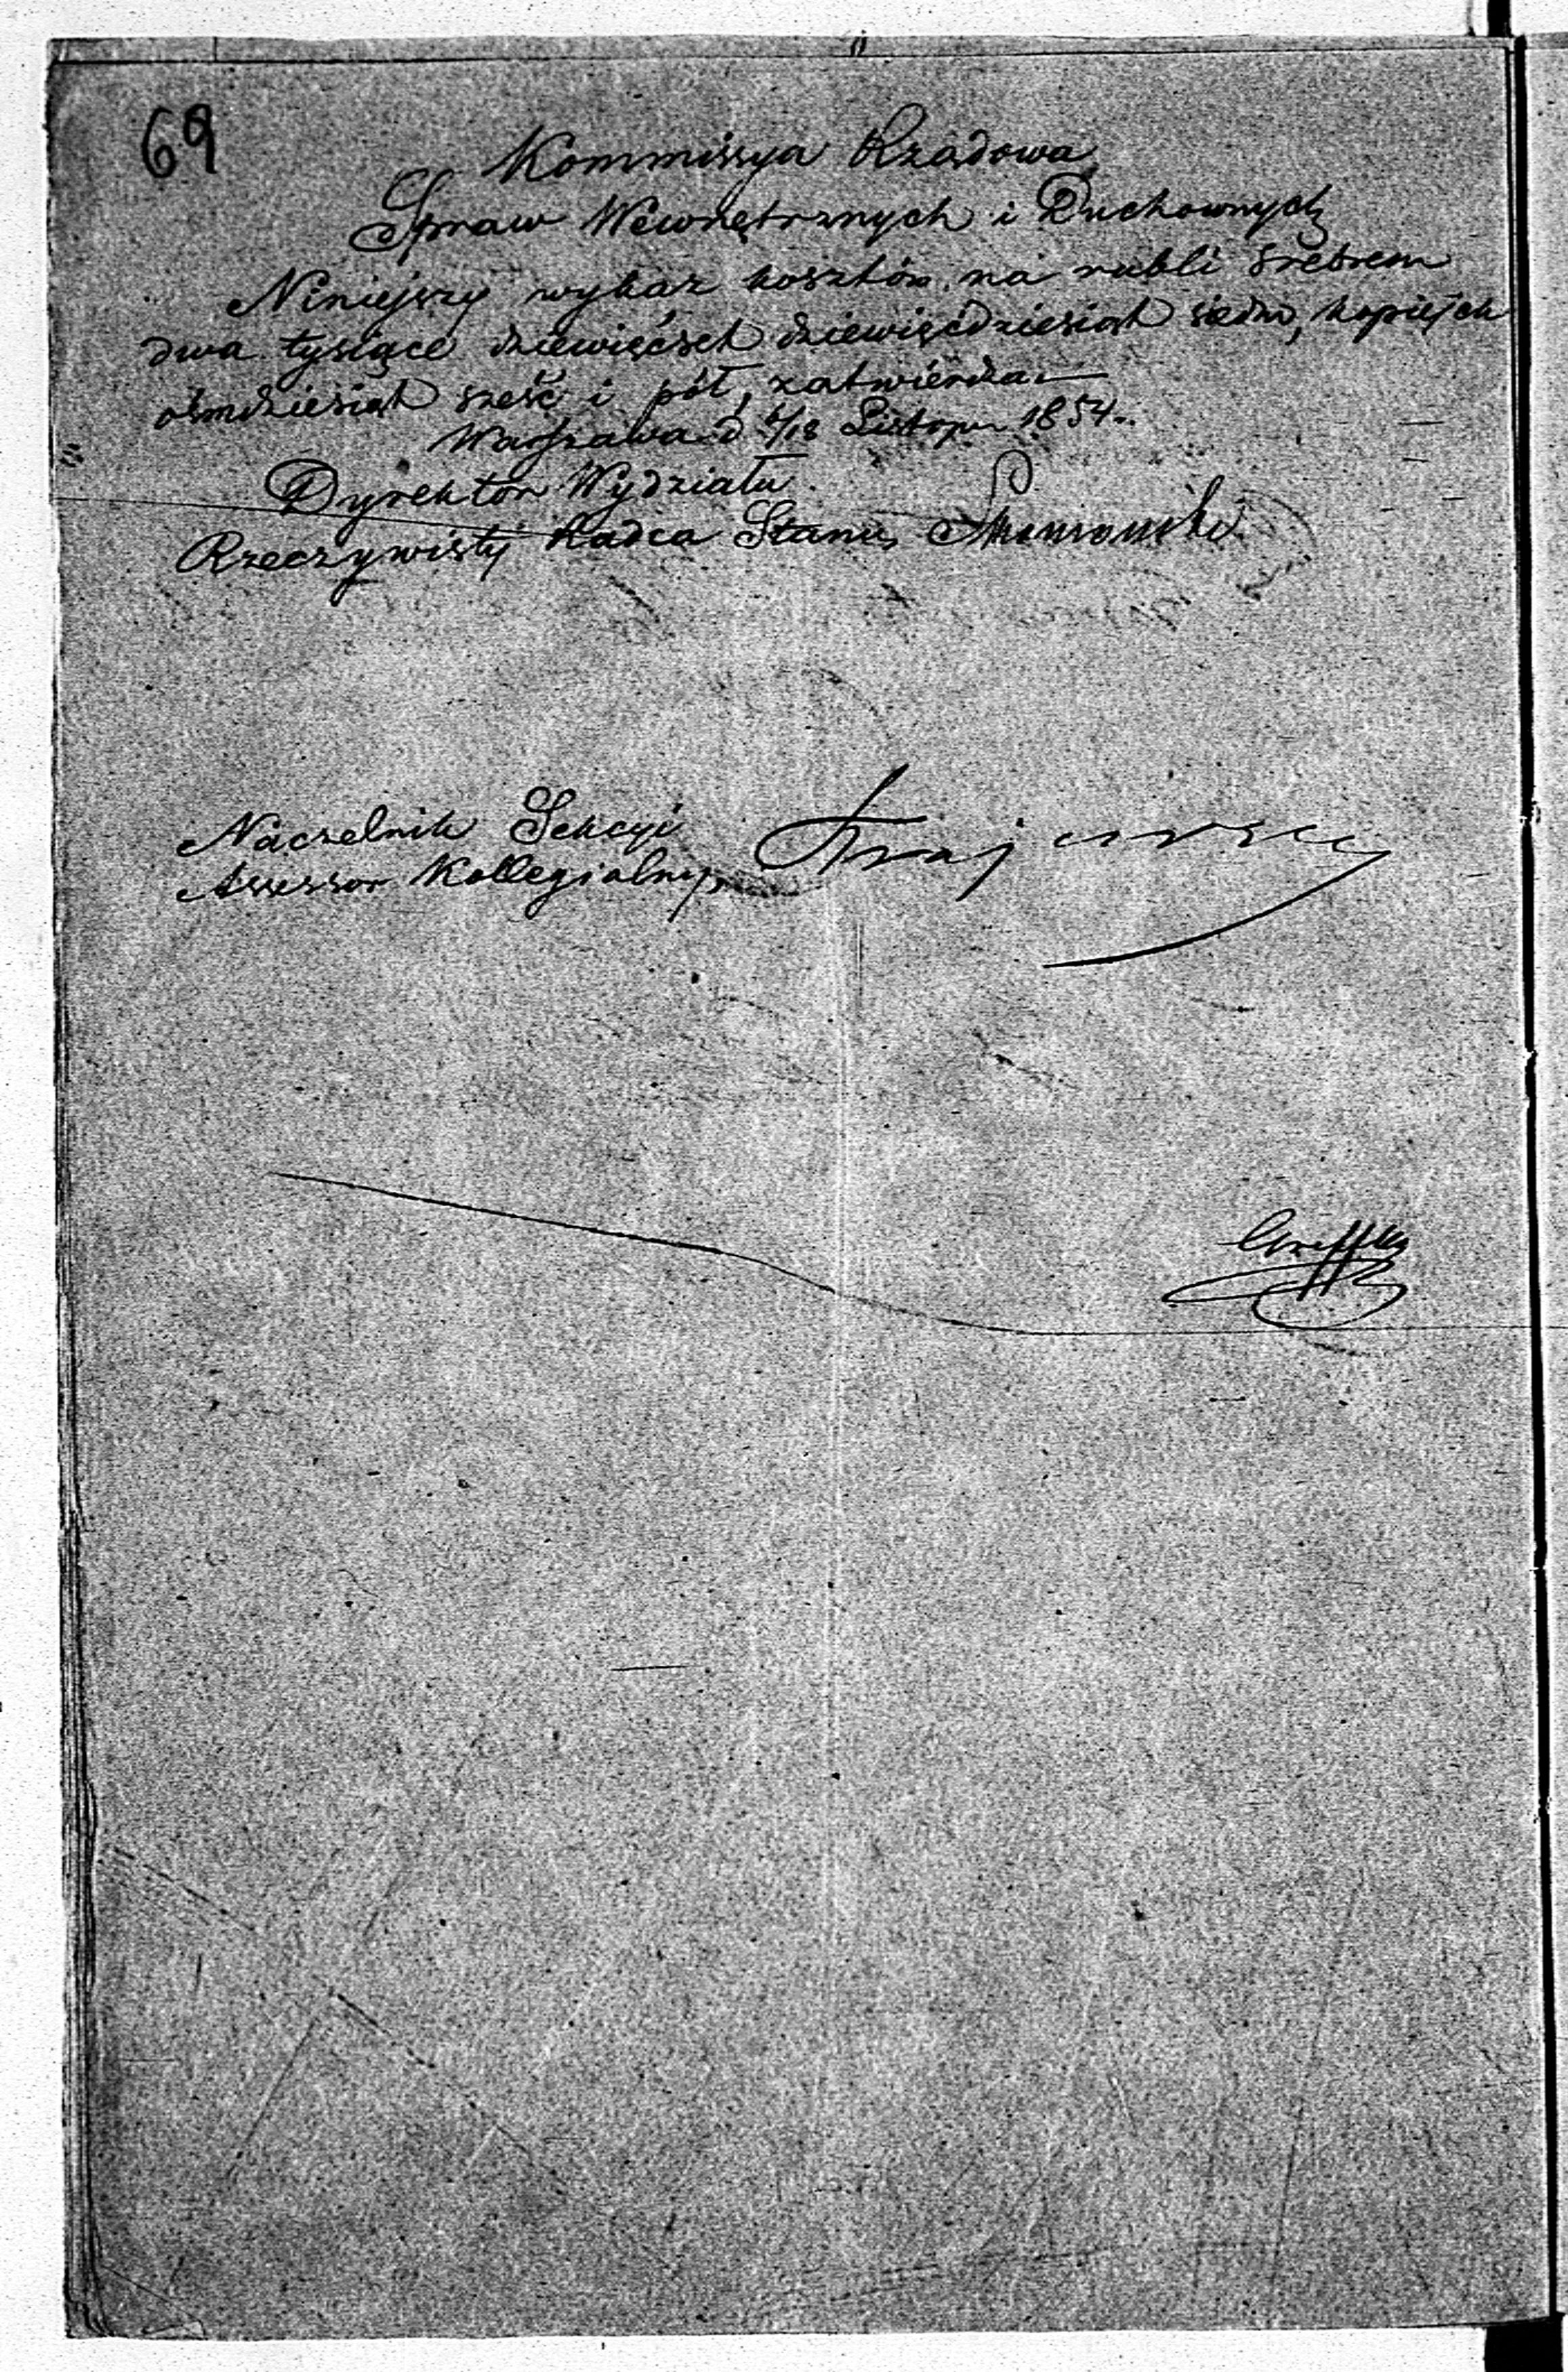 69
Kommissya Rządowa
Spraw Wewnętrznych i Duchownych
Niniejszy wykaz kosztów na rubli srebrem
dwa tysiące dziewięćset dziewięćdziesiąt siedm, kopiejek
ośmdziesiąt sześć i pół, zatwierdza
Warszawa d 6/18 Listop. 1854.
Dyrektor Wydziału
Rzeczywisty Radca Stanu,
Naczelnik Sekcyi
Assessor Kollegialny,